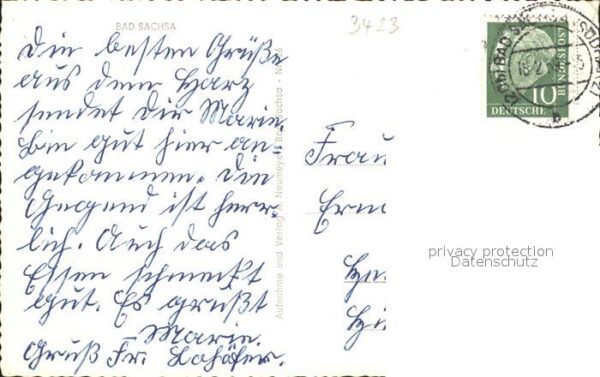 BAD SACHSA
3423
Die besten Grüße
aus dem Harz
sendet Dir Marie.
Bin gut hier an-
gekommen. Die
Gegend ist herr-
lich. Auch das
Essen schmeckt
gut. Es grüßt
Marie.
Gruß Fr. Lohöfer.
Aufnahme und Verlag A. Neumeyer, Bad Sachsa
BAD SACHSA (SÜDHARZ)
10
DEUTSCHE
BUNDESPOST
Frau
Erm
privacy protection
Datenschutz